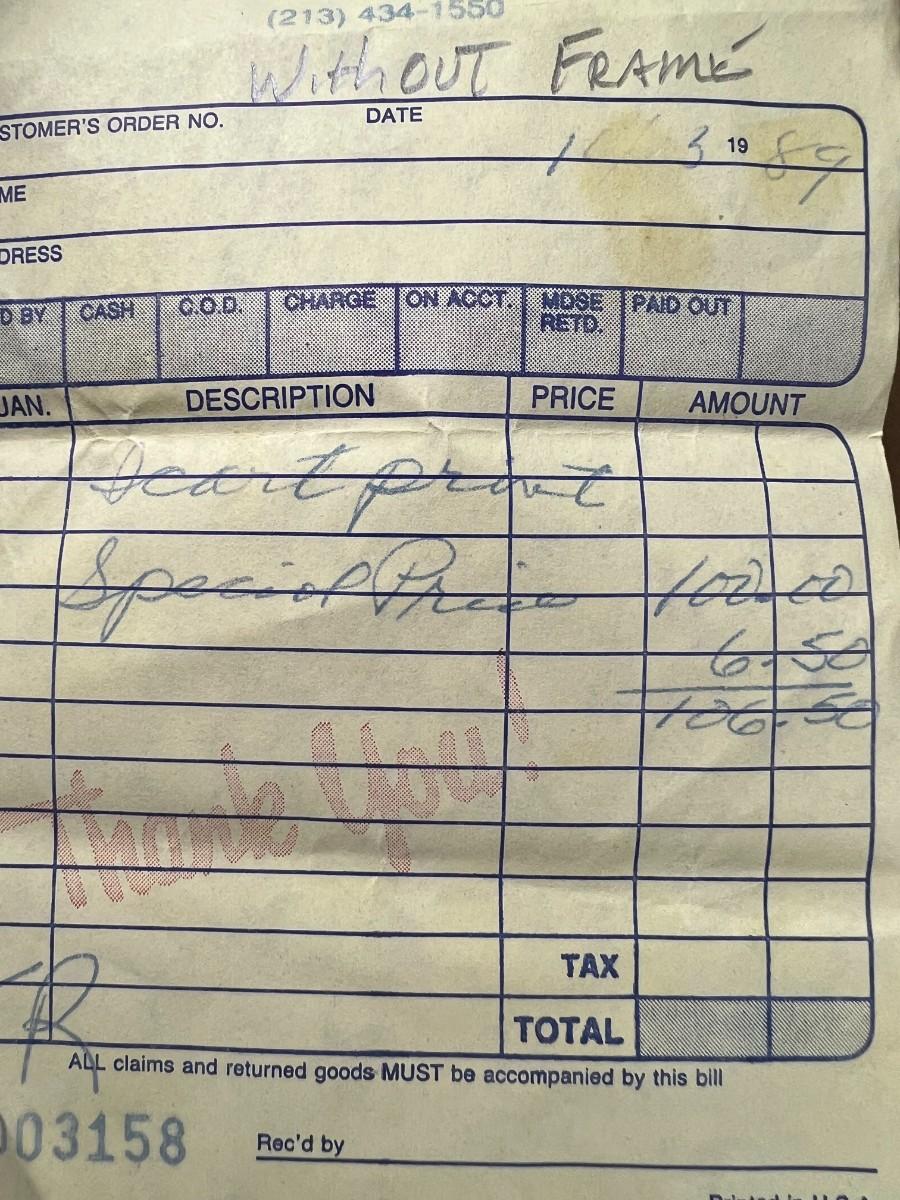 (213) 434-1550
WithOUT FRAME
STOMER'S ORDER NO. DATE
1 3 19 89
ME
DRESS
D BY CASH C.O.D. CHARGE ON ACCT. MDSE RETD. PAID OUT
UAN. DESCRIPTION PRICE AMOUNT
print
Special Price 100.00
6.50
106.50
Thank You!
TAX
TOTAL
ALL claims and returned goods MUST be accompanied by this bill
003158 Rec'd by
Printed in U.S.A.